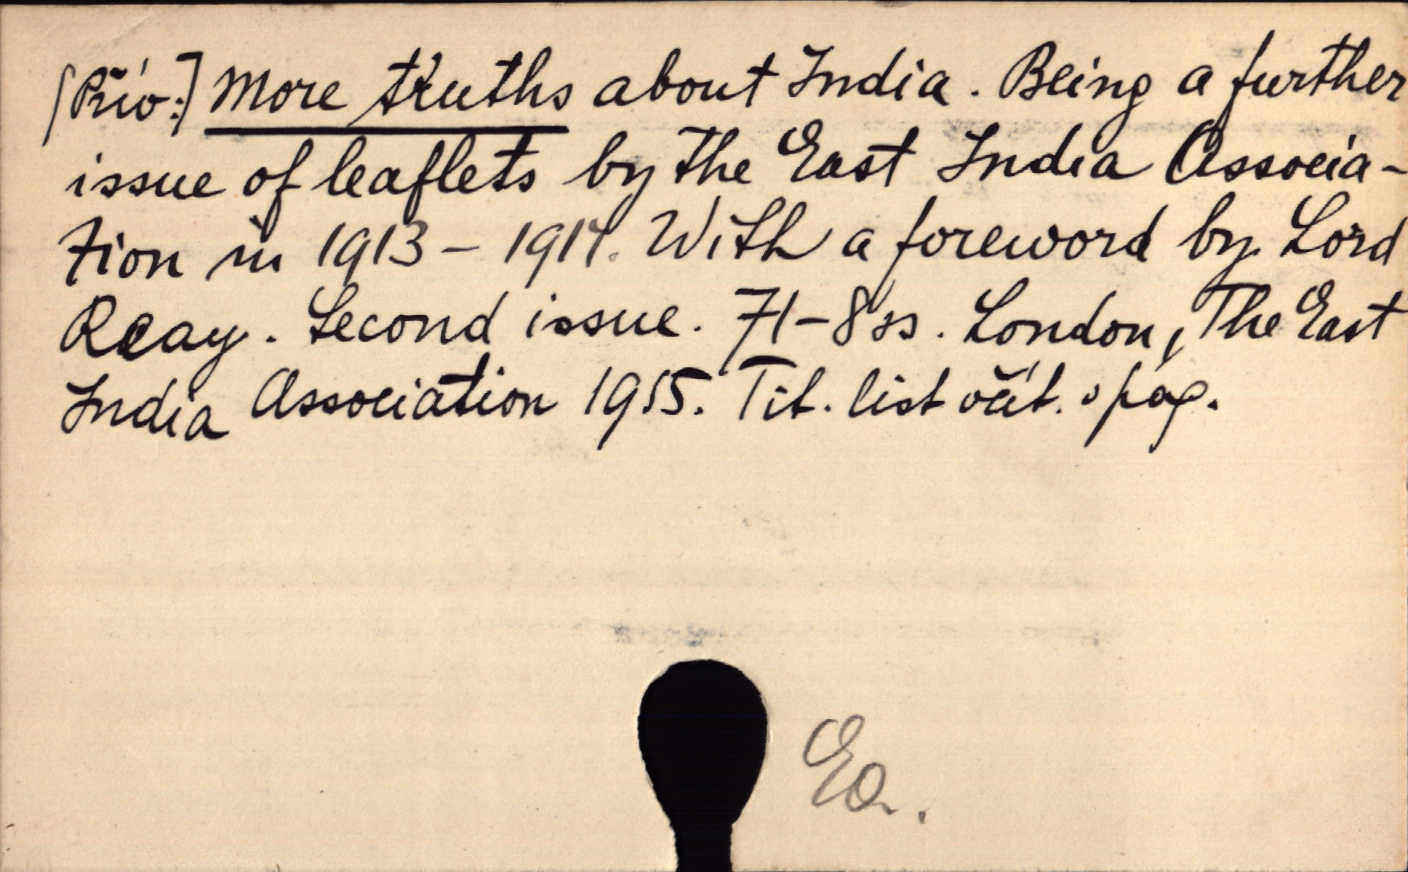 [Přív.:] More truths about India. Being a further
issue of leaflets by the East India Associa-
tion in 1913 – 1914. With a foreword by Lord
Reay. Second issue. 71 – 8 ss. London, The East
India Association 1915. Tit. list